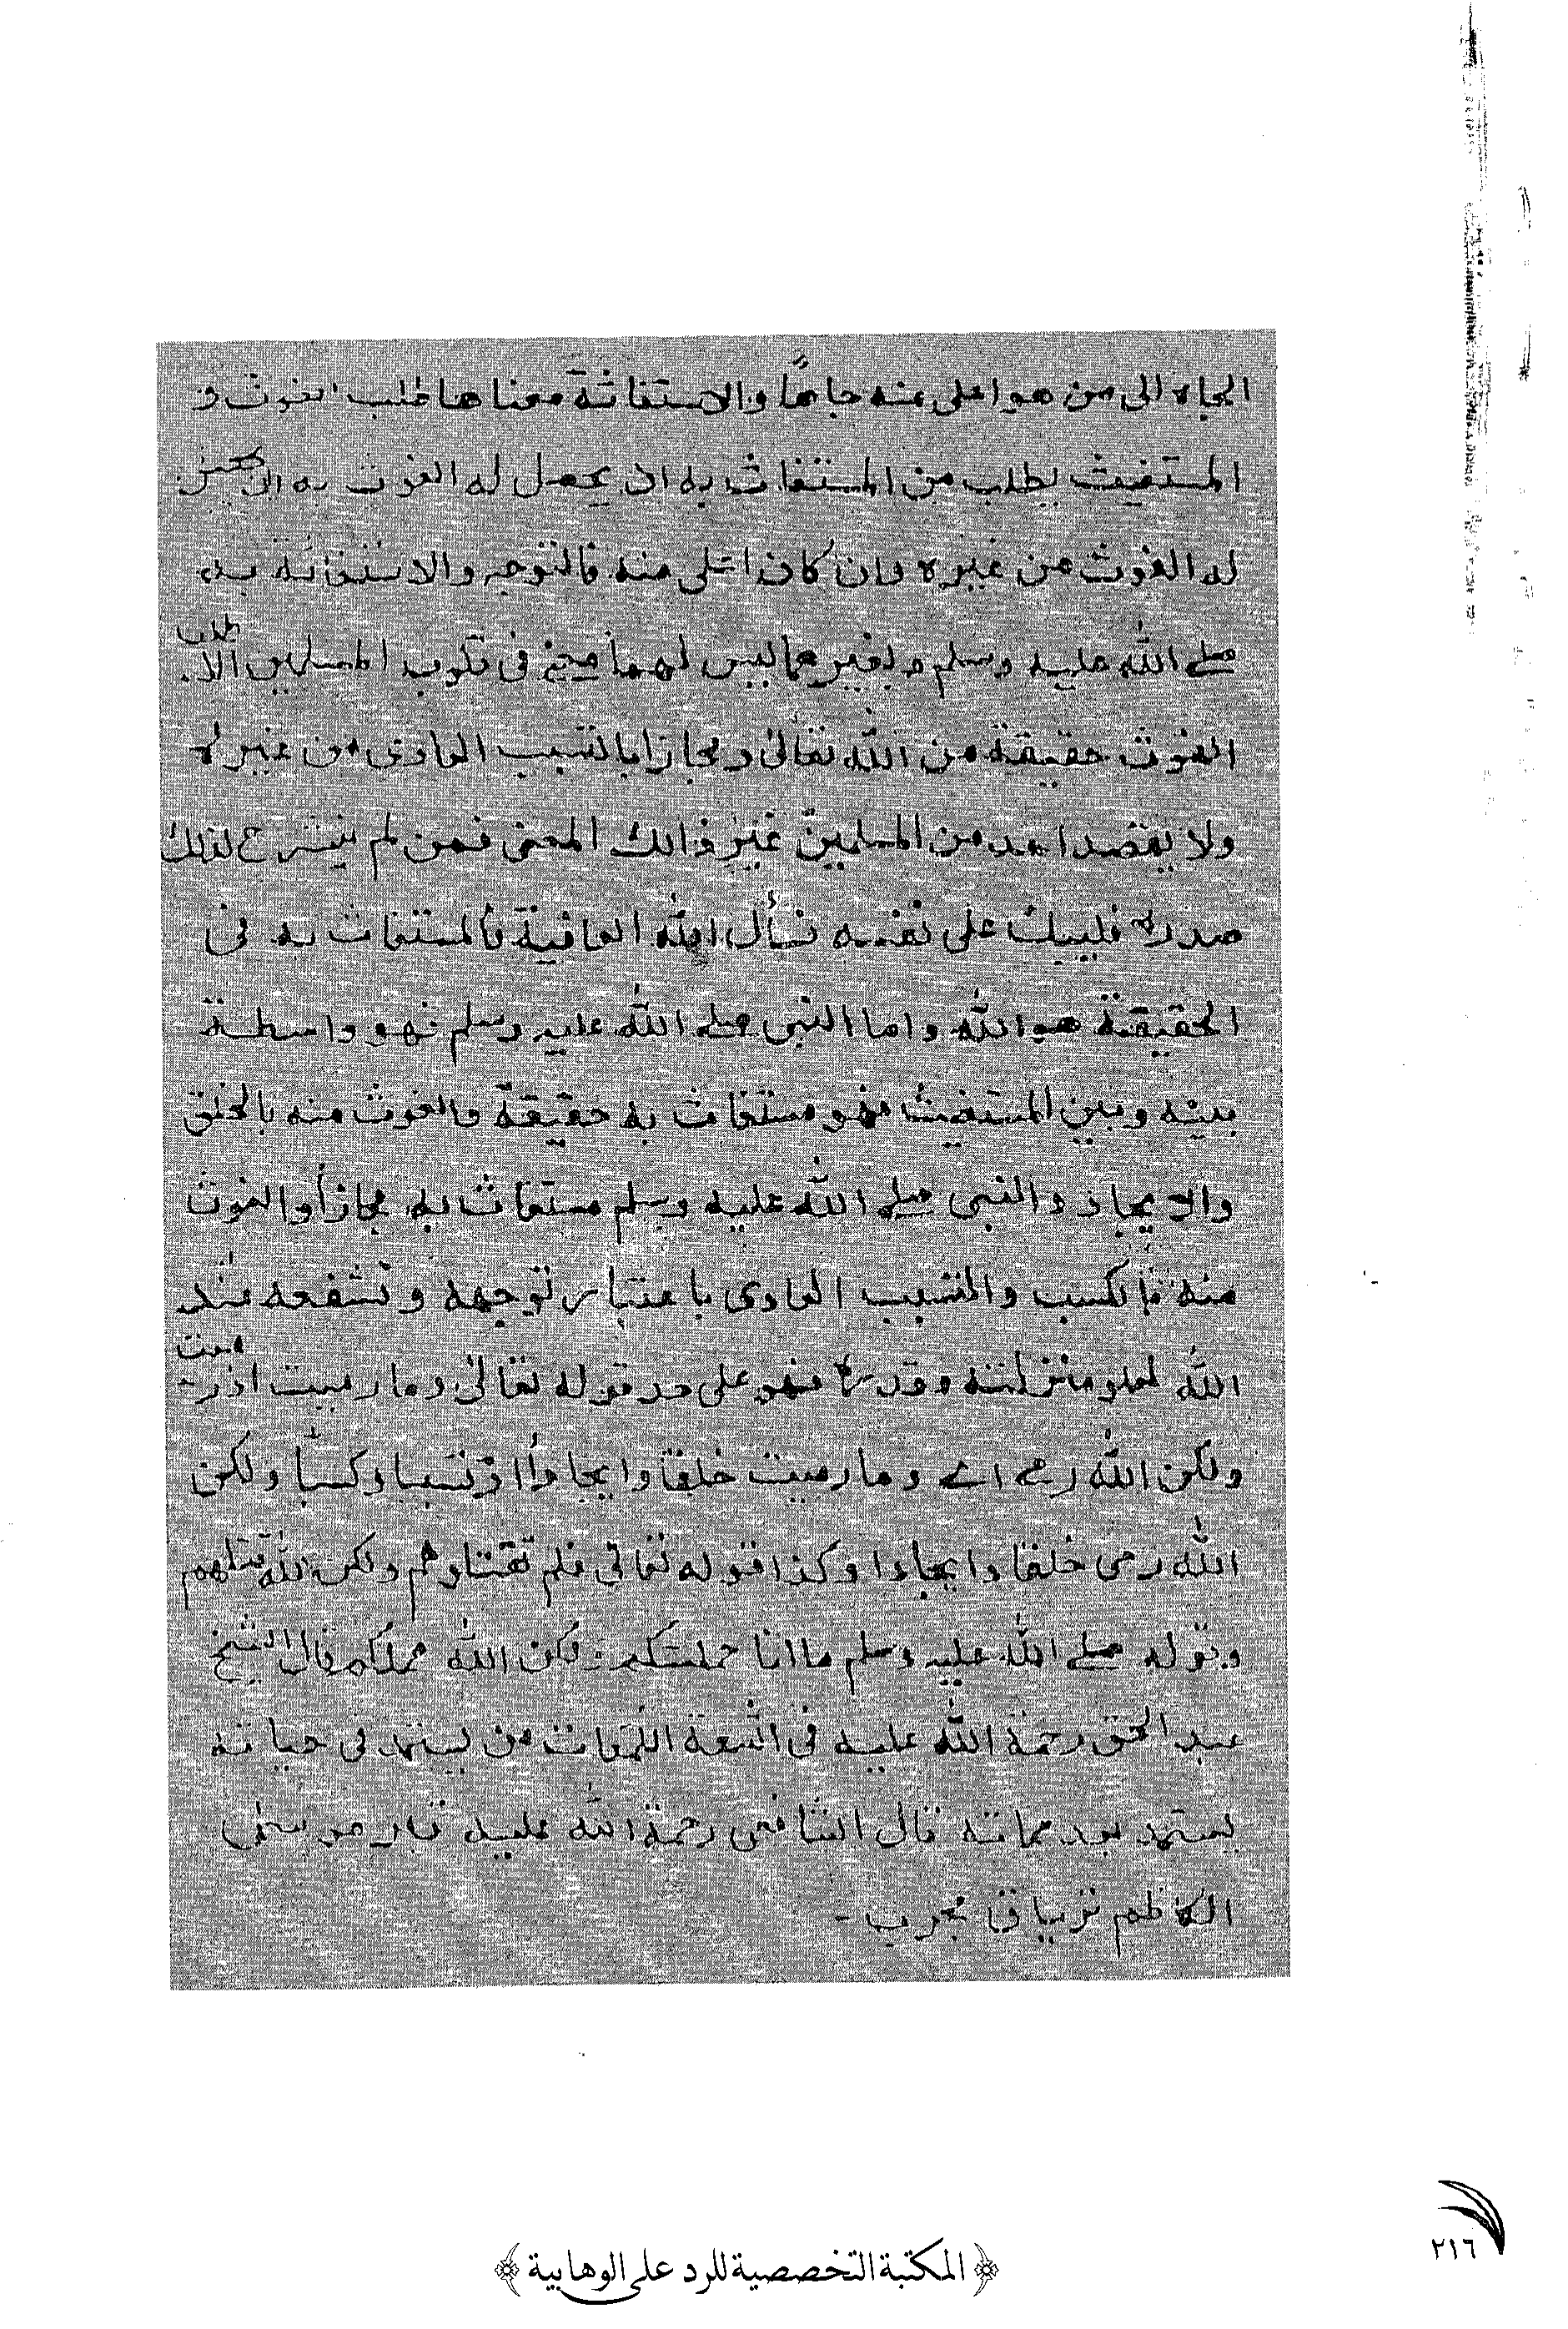 الجاه الى من هو اعلى منه جاهاً والاستغاثة معناها طلب الغوث و
المستغيث يطلب من المستغاث به ان يحصل له الغوث
له الغوث من غيره وان كان اعلى منه فالتوجه والاستغاثة به
صلى الله عليه وسلم وبغيره ليس لهما معنى في قلوب المسلمين الا طلب
الغوث حقيقة من الله تعالى ومجازا بالتسبب العادى من غيره
ولا يقصد احد من المسلمين غير ذالك المعنى فمن لم ينشرح لذلك
صدره فليبك على نفسه نسأل الله العافية فالمستغاث به في
الحقيقة هو الله واما النبي صلى الله عليه وسلم فهو واسطة
بينه وبين المستغيث فهو مستغاث به حقيقة والغوث منه بالخلق
والايجاد والنبي صلى الله عليه وسلم مستغاث به مجازاً والغوث
منه بالكسب والتسبب العادى باعتبار توجهه وتشفعه عند
الله لعلو منزلته وقدره فهو على حد قوله تعالى وما رميت اذ رميت
ولكن الله رمى اے وما رميت خلقا وايجاداً اذ تسبباً وكسباً ولكن
الله رمى خلقا وايجادا وكذا قوله تعالى فلم تقتلوهم ولكن الله قتلهم
وقوله صلى الله عليه وسلم ما انا حملتكم ولكن الله حملكم قال الشيخ
عبد الحق رحمة الله عليه في اشعة اللمعات من يستمد في حياته
يستمد بعد مماته قال الشافعى رحمة الله عليه قبر موسى
الكاظم ترياق مجرب -
المكتبة التخصصية للرد على الوهابية
٢١٦